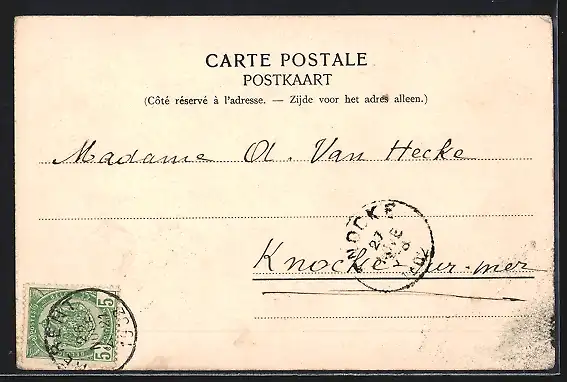 CARTE POSTALE
POSTKAART
(Côté réservé à l'adresse. — Zijde voor het adres alleen.)
Madame A. Van Hecke
KNOCKE
27
Knocke-sur-mer
5 5
1902